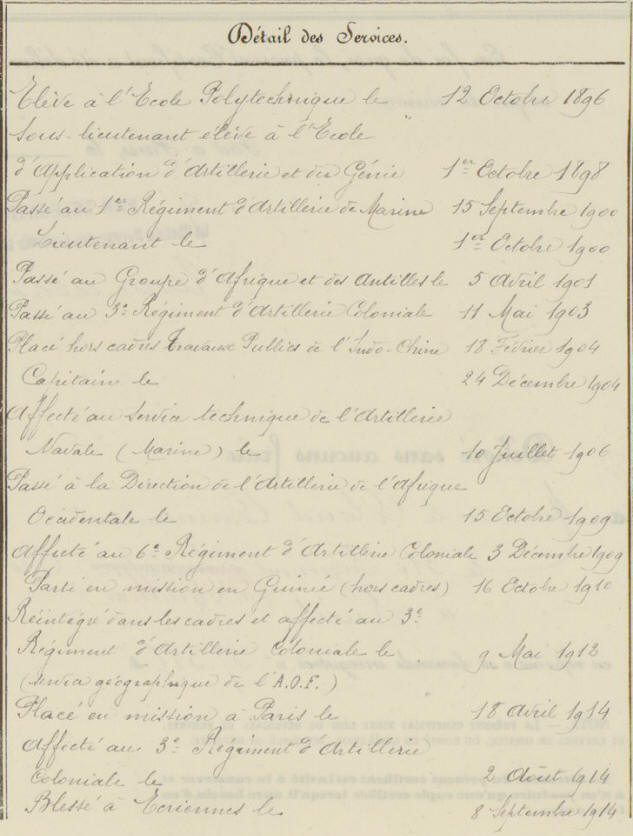 Détail des Services.
Elève à l'École Polytechnique le 12 Octobre 1896
Sous-lieutenant élève à l'École
d'Application d'Artillerie et du Génie 1er Octobre 1898
Passé au 1er Régiment d'Artillerie de Marine 15 Septembre 1900
Lieutenant le 1er Octobre 1900
Passé au Groupe d'Afrique et des Antilles le 5 Avril 1901
Passé au 3e Régiment d'Artillerie Coloniale 11 Mai 1903
Placé hors cadres Travaux Publics de l'Indo-Chine 18 Février 1904
Capitaine le 24 Décembre 1904
Affecté au Service technique de l'Artillerie
Navale (Marine) le 10 Juillet 1906
Passé à la Direction de l'Artillerie de l'Afrique
Occidentale le 15 Octobre 1909
Affecté au 6e Régiment d'Artillerie Coloniale 3 Décembre 1909
Parti en mission en Guinée (hors cadres) 16 Octobre 1910
Réintégré dans les cadres et affecté au 3e
Régiment d'Artillerie Coloniale le 9 Mai 1912
(Service géographique de l'A.O.F.)
Placé en mission à Paris le 18 Avril 1914
Affecté au 3e Régiment d'Artillerie
Coloniale le 2 Août 1914
Blessé à Ecriennes le 8 Septembre 1914